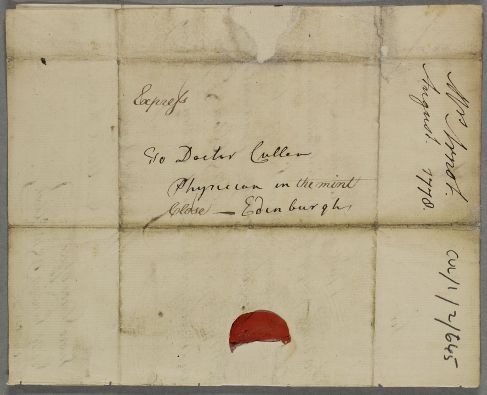 Express
To Doctor Cullen
Physician in the mint
Close — Edinburgh
Mrs Arnot.
August. 1778
CUL/1/2/645